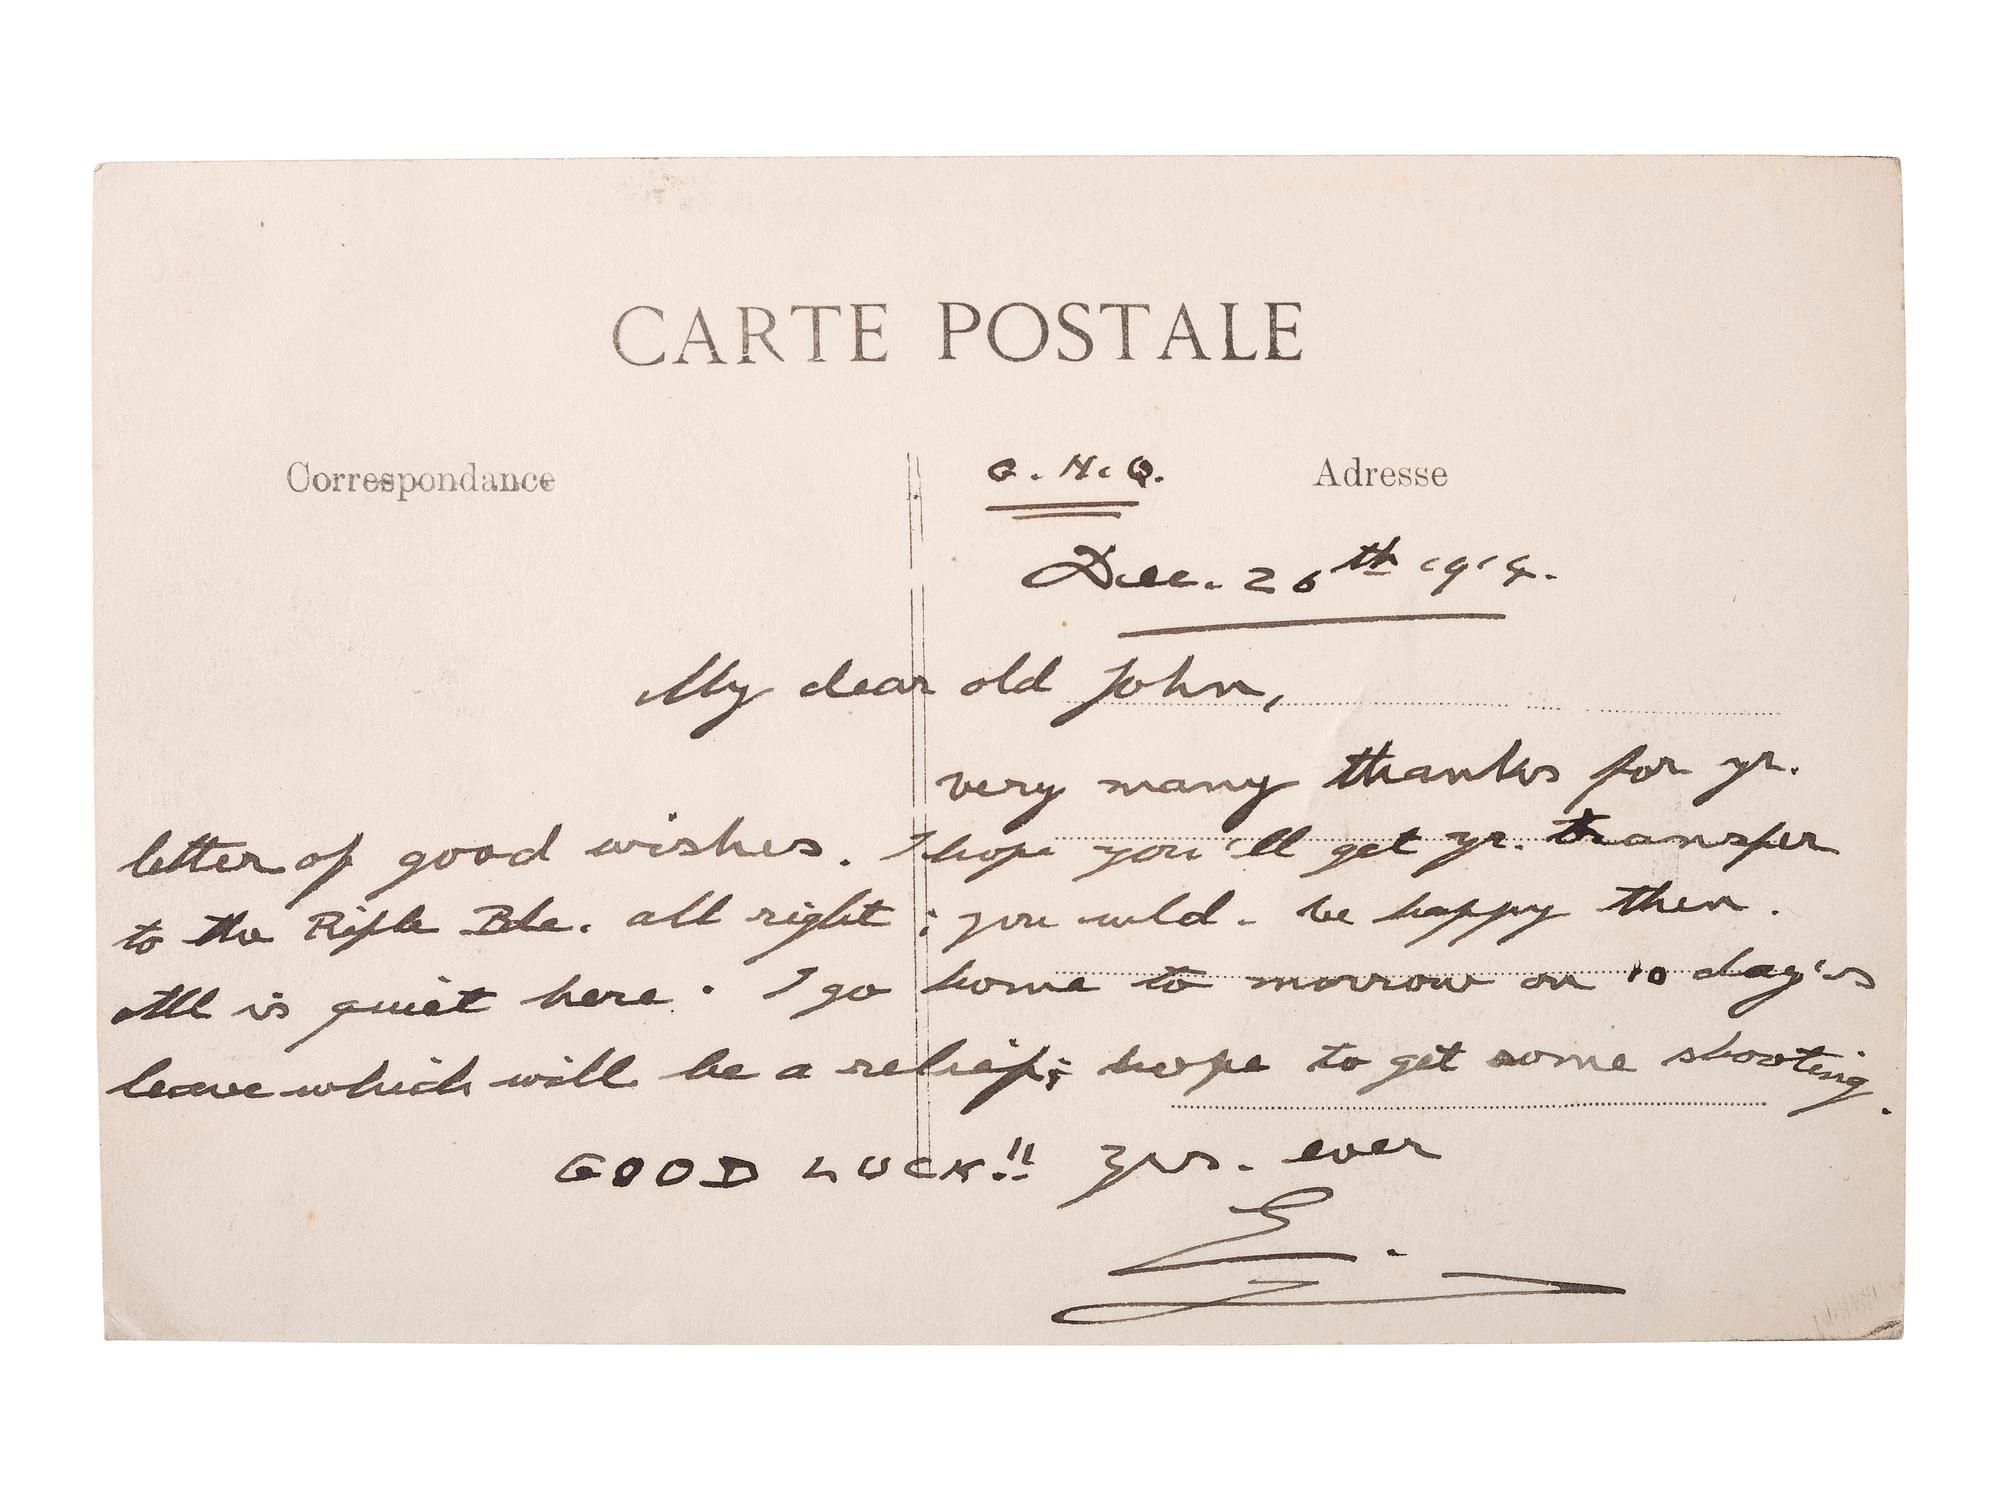 CARTE POSTALE
Correspondance
G.H.Q. Adresse
Dec. 26th 1914.
My dear old John,
very many thanks for yr.
letter of good wishes. I hope you'll get yr. transfer
to the Rifle Bde. all right; you wld. be happy then.
All is quiet here. I go home to morrow on 10 day's
leave which will be a relief; hope to get some shooting.
GOOD LUCK!! Yrs. ever
E.